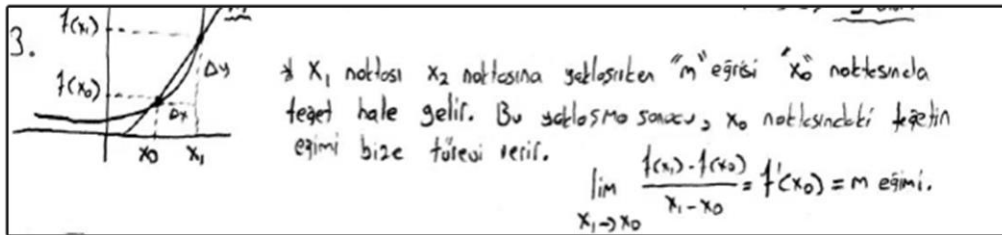 3.
f(x₁)
f(x₀)
Δy
Δx
x₀ x₁
* x₁ noktası x₂ noktasına yaklaşırken "m" eğrisi "x₀" noktasında
teğet hale gelir. Bu yaklaşma sonucu, x₀ noktasındaki teğetin
eğimi bize türevi verir.
lim x₁→x₀ f(x₁) - f(x₀) / x₁ - x₀ = f'(x₀) = m eğimi.